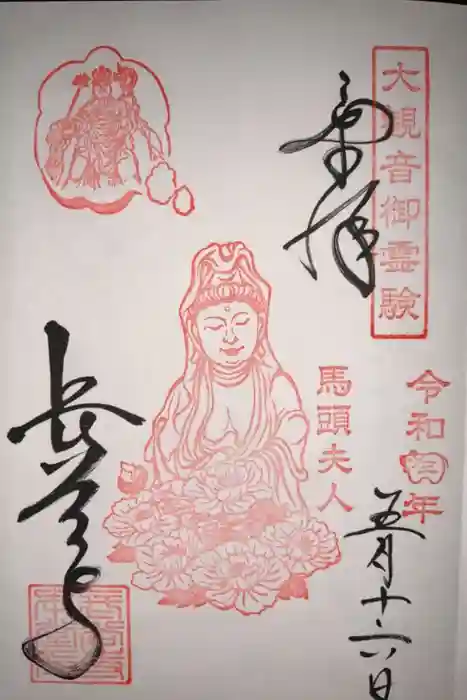 大観音御霊験
奉拝
令和年
五月十六日
馬頭夫人
長谷寺